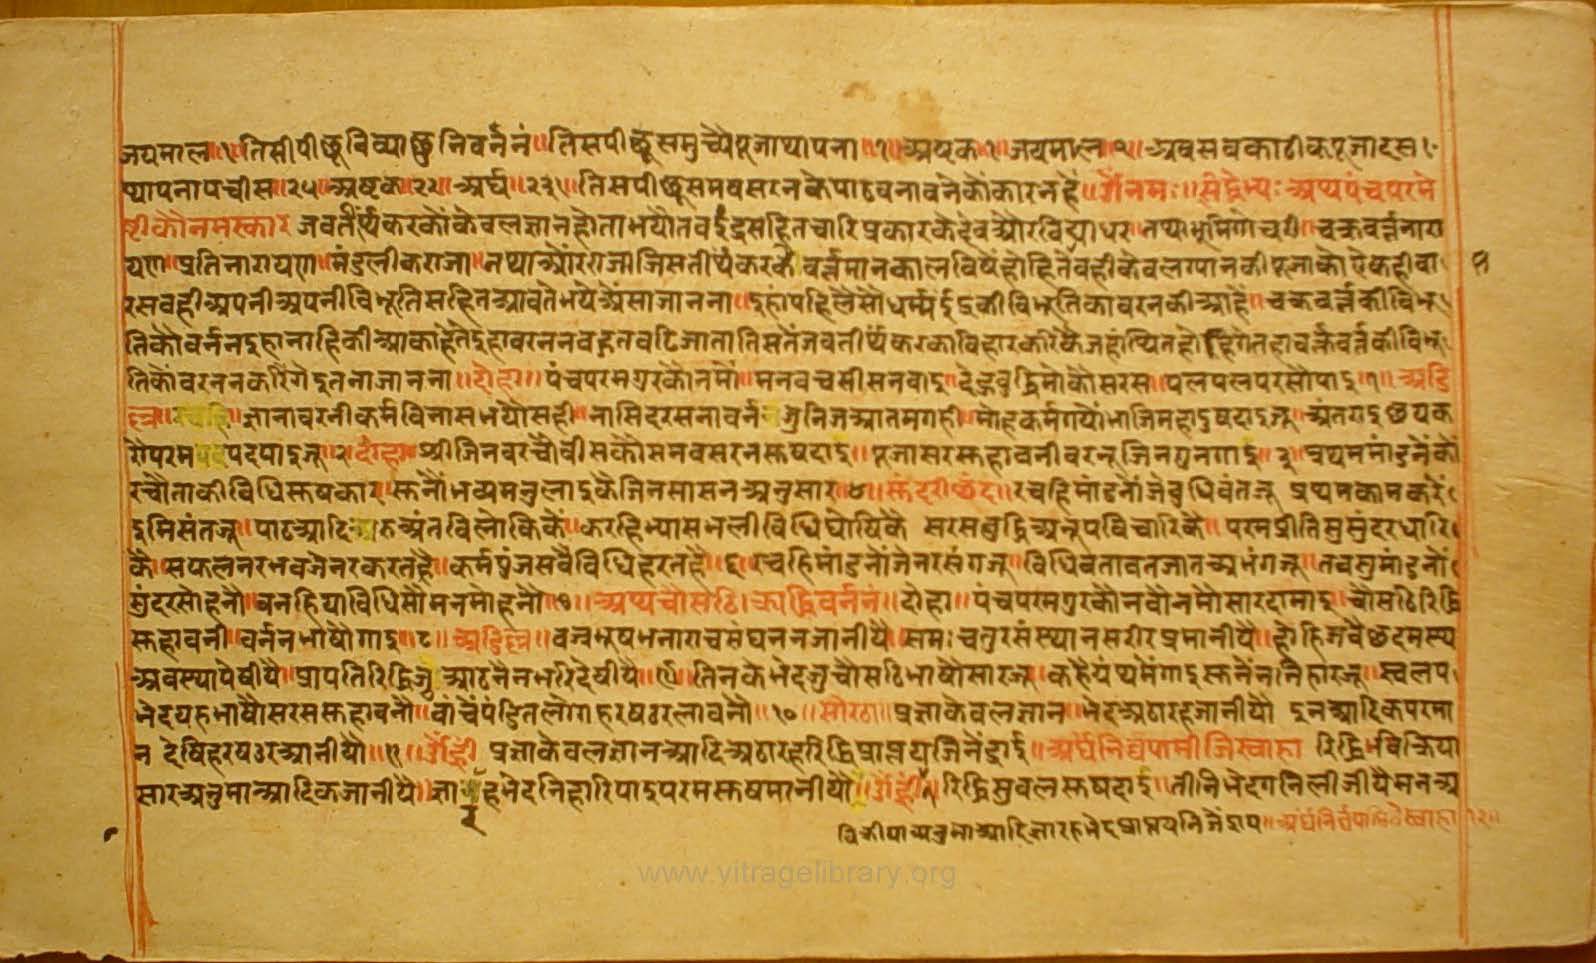 जयमाल॥१॥तिसीपीछूविव्याछुनिवर्ननं॥तिसपीछूसमुच्चैपूजाथापना॥१॥अष्टक॥१॥जयमाल॥१॥अवसवकाठीकपूजादस१
ष्यापनापच्चीस॥२५॥अष्टक॥२२॥अर्घ॥२३५॥तिसपीछूसमवसरनकेपाठवनावनेकौंकारनहैं॥ॐनमः॥सिद्धेभ्यः॥अथपंचपरमे
ष्टीकौंनमस्कार जवतीर्थंकरकौंकेवलज्ञानहोताभयौतवइंद्रसहितचारिप्रकारकेदेवऔरविद्याधर॥तथाभूमिगोचरी॥चक्रवर्त्तनारा
यण॥प्रतिनारायण॥मंडलीकराजा॥तथाऔरराजाजिसतीर्थंकरकैवर्त्तमानकालविषैंहोहितेवहीकेवलग्यानकीपूजाकौंऐकहीवा
रसवहीअपनीअपनीविभूतिसहितआवतेभयेअैंसाजानना॥इहांपहिलैसौधर्म्मइंद्रकीविभूतिकावरनकीआहै॥चक्रवर्त्तकीविभू
तिकौंवर्ननइहानाहिकीआकाहेतैइहावरननवहुतवढिजातातिसतैंजवतीर्थंकरकाविहारकरिकैजहांस्थितहोहिगेतहाचक्रवर्त्तकीविभू
तिकौंवरननकरैंगेइतनाजानना॥दोहा॥पंचपरमगुरकौंनमौं॥मनवचसीसनवाइ॥देहुबुद्धिमोकौंसरस॥पलपलपरसौंपाइ॥१॥अडि
ल्ल॥ज्ञानावरनीकर्मविनासभयौसही॥नासिदरसनावर्नजुनिजआतमगही॥मोहकर्मगयौभाजिमहादुषदाइजू॥अंतराइछयक
रौपरमपदपाइजू॥२॥दोहा॥श्रीजिनवरचौवीसकौंसमवसरनसुषदाइ॥पूजासरसुहावनीवरनूजिनगुनगाइ॥३॥प्रथममांडनेंकौं
रचौताकीविधिसुषकार॥सुनौंभव्यमनुलाइकैजिनसासनअनुसार॥४॥सुंदरीछंद॥रचहिमांडनौंजेवुधिवंतजू प्रथमकामकरें
इमिसंतजू॥पाठआदिअरुअंतविलोकिकैं॥करहिभ्यासभलीविधिघोषिकै सरसवुद्धिअनूपविचारिकै॥परमप्रीतिसुसुंदरधारि
कै॥सफलनरभवजेनरकरतहै॥कर्मपुंजसवैविधिहरतहै॥६॥रचहिमांडनौंजेनरसंगजू॥विधिवतावतजातअभंगजू॥तवसुमांडनौं
सुंदरसोहनौ॥वनहियाविधिसौंमनमोहनौ॥७॥अथचौसठिरिद्धिवर्ननं॥दोहा॥पंचपरमगुरकौंनवौंनमौंसारदामाइ॥चौसठिरिद्धि
सुहावनी॥वर्ननभाषौंगाइ॥८॥अडिल्ल॥वज्रभूषभनाराचसंघननजानीयै॥समःचतुरसंस्थानसरीरप्रमानीयै॥होहिजवैछदमस्थ
अवस्थापेषीयै॥प्रापतिरिद्धिजुआठनैनभरिदेषीयै॥९॥तिनकेभेदजुचौसठिभाषौंसारजू॥कहैग्रंथमेंगाइसुनैंननिहारजू॥स्वलप
भेदयहभाषौंसरससुहावनौ॥वांचैपंडितलोगहरषउरलावनौ॥१०॥सोरठा॥प्रज्ञाकेवलज्ञान॥भेदअठारहजानीयौ इनआदिकपरमा
न देषिहरषउरआनीयौ॥१॥ॐह्रीं प्रज्ञाकेवलज्ञानआदिअठारहरिद्धिप्राप्तयजिनेंद्राइ॥अर्घंनिर्वपामीतिस्वाहा रिद्धिभविक्रिया
सारअनुमानआदिकजानीयै॥ग्याहभेदनिहारिपाइपरमसुषमानीयौ॥ॐह्रीं॥रिद्धिसुवलसुषदाइ॥तीनिभेदगनिलीजीयैमनअ
विक्रीयाअनुमाआदिग्यारहभेदप्राप्तयजिनेंद्राय॥अर्घंनिर्वपामीतिस्वाहा॥१२॥
www.vitragelibrary.org